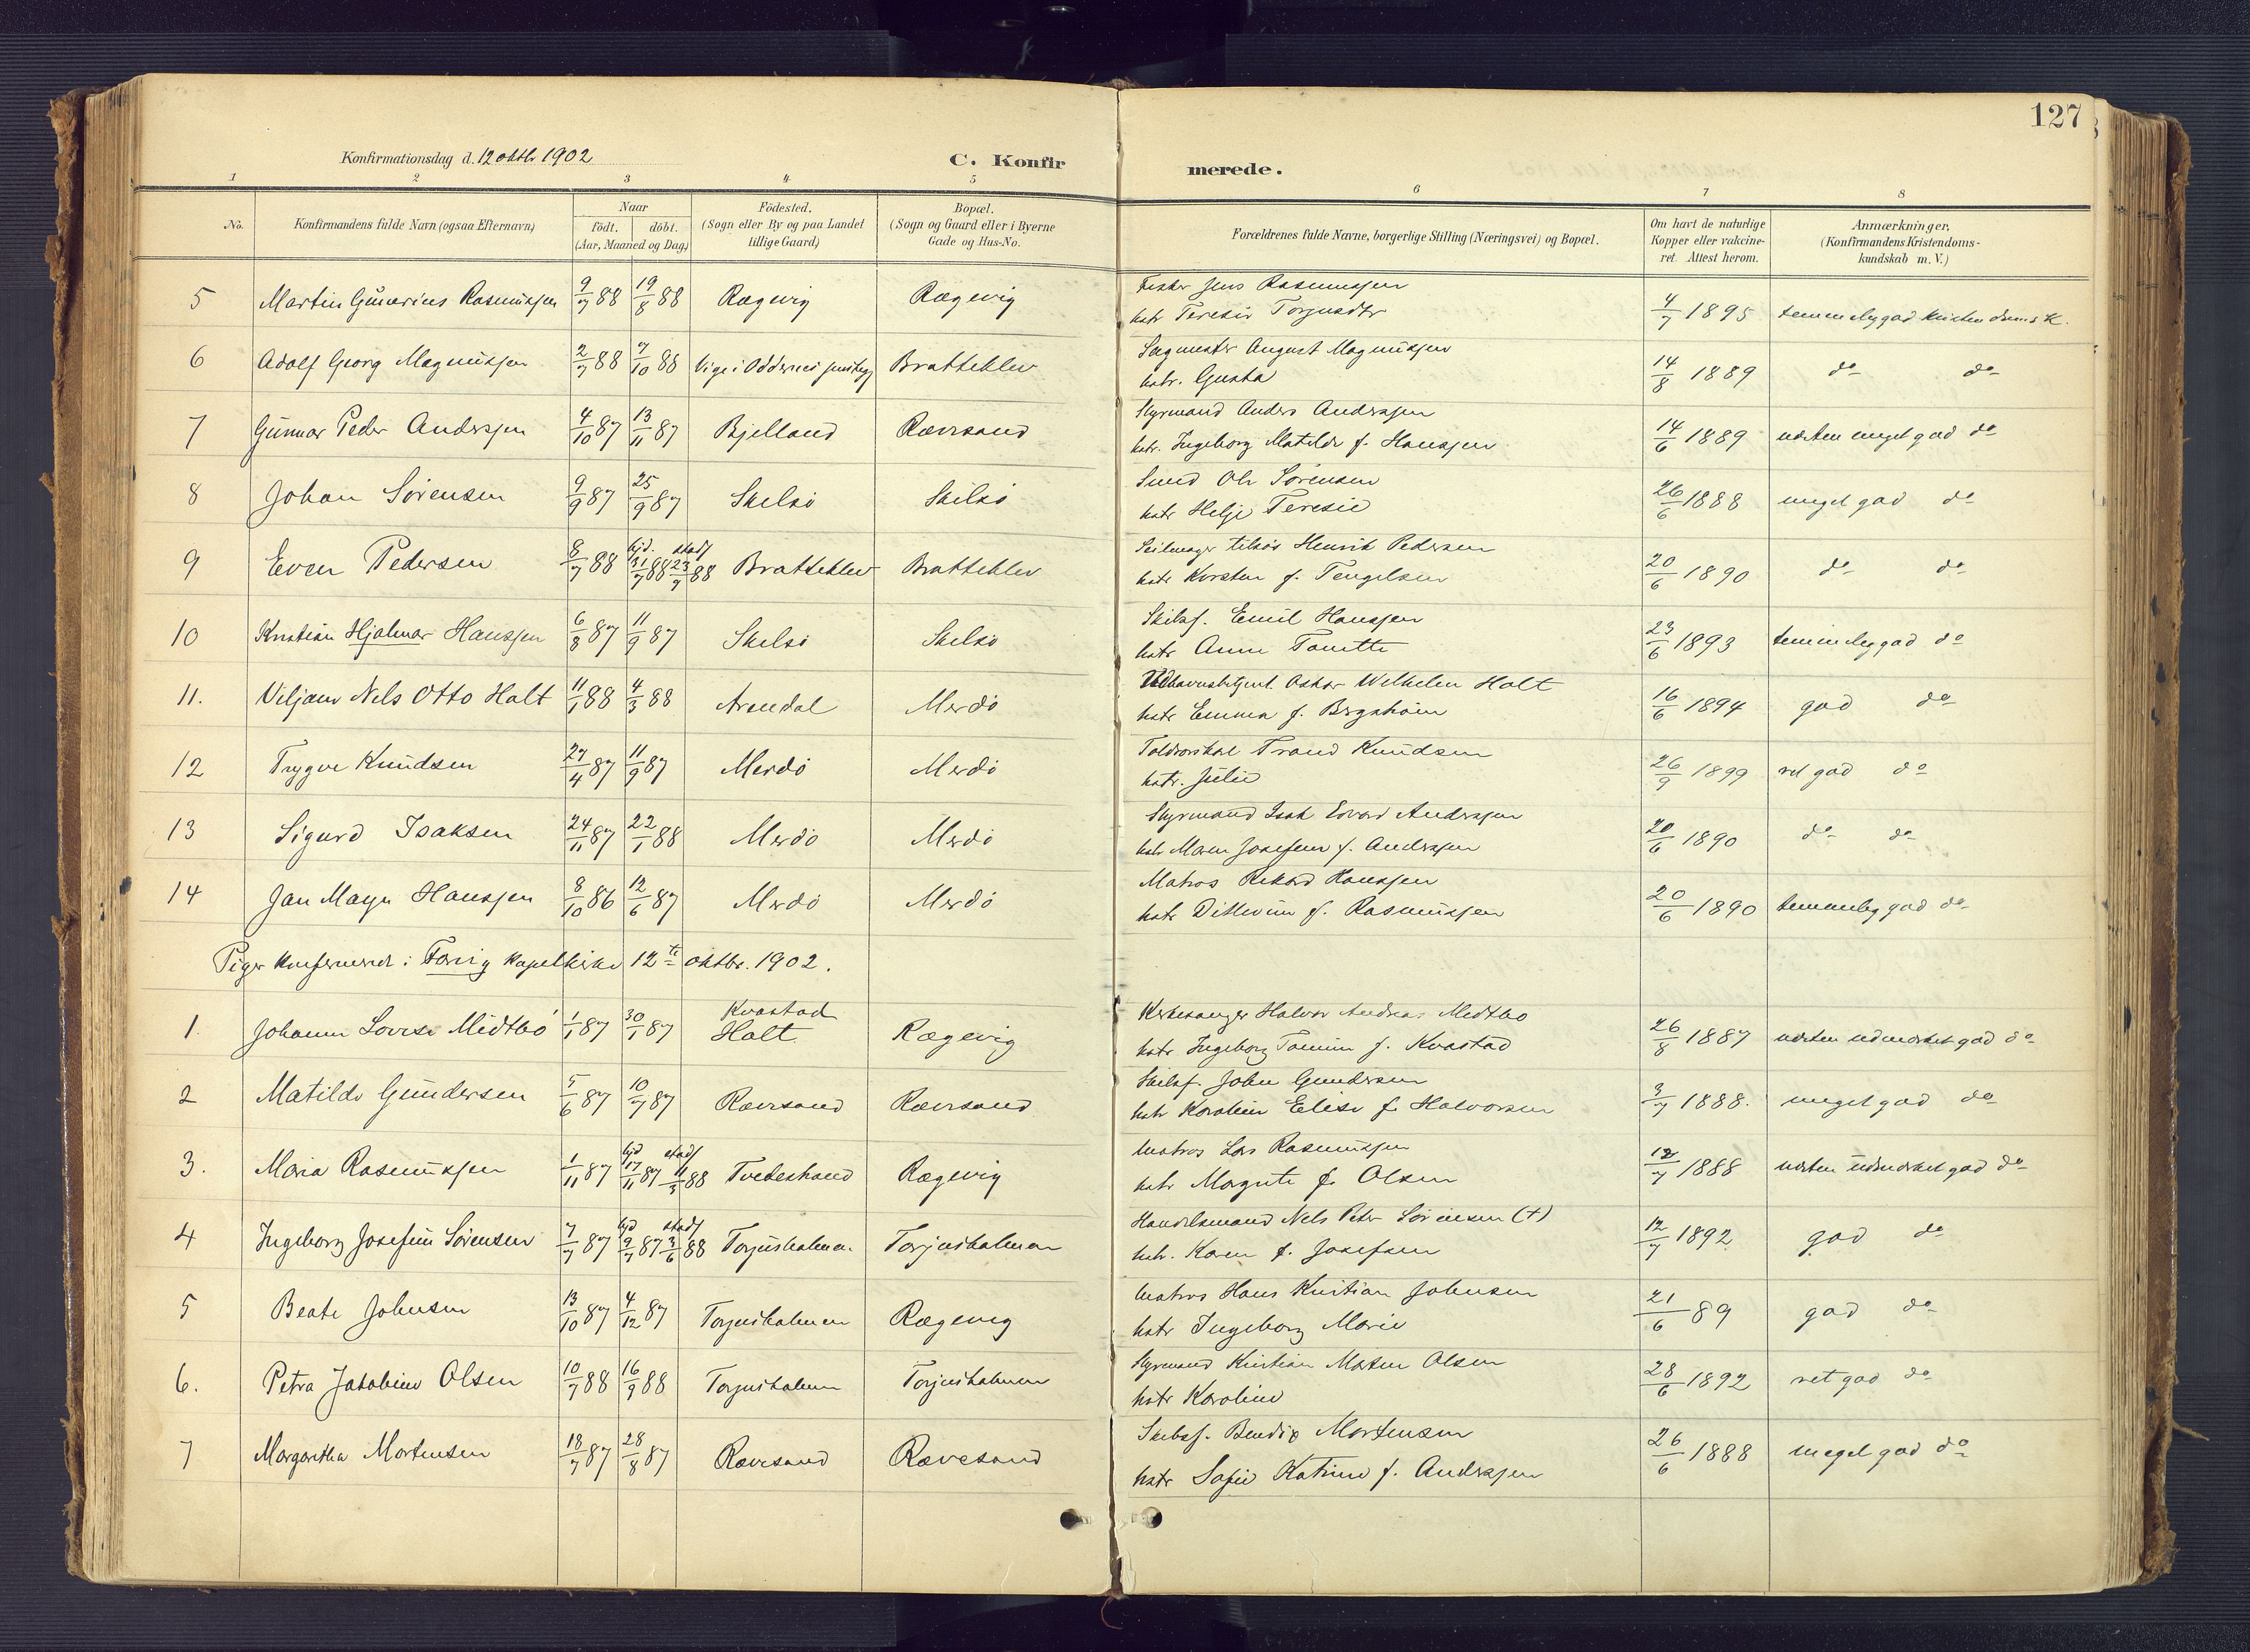 127
Konfirmationsdag d. 12 oktbr 1902
C. Konfirmerede.
1 2 3 4 5 6 7 8
No. Konfirmandens fulde Navn (ogsaa Efternavn) Naar födt. döbt. (Aar, Maaned og Dag) Födested. (Sogn eller By og paa Landet tillige Gaard) Bopæl. (Sogn og Gaard eller i Byerne Gade og Hus-No. Forældrenes fulde Navne, borgerlige Stilling (Næringsvei) og Bopæl. Om havt de naturlige Kopper eller vakcineret. Attest herom. Anmærkninger, (Konfirmandens Kristendomskundskab m. V.)
5 Martin Gunerius Rasmussen 9/7 88 19/8 88 Rægevig Rægevig Fisker Jens Rasmussen
hstr Teresie Torjusdtr 4/7 1895 temmelig god kristendomsk.
6 Adolf Georg Magnussen 2/7 88 7/10 88 Vige i Oddernes Bratteklev Sagmester August Magnussen
hstr. Gusta 14/8 1889 do do
7 Gunnar Peder Anderssen 4/10 87 13/11 87 Bjelland Rævesand Styrmand Anders Anderssen
hstr. Ingeborg Matilde f. Hanssen 14/6 1889 næsten meget god do
8 Johan Sörensen 9/9 87 25/9 87 Skilsö Skilsö Smed Ole Sörensen
hstr Helje Teresie 26/6 1888 meget god do
9 Even Pedersen 8/7 88 hjd. 31/7 88 stadf 23/9 88 Bratteklev Bratteklev Seilmager tilsøs Henrik Pedersen
hstr Kirsten f. Tengelsen 20/6 1890 do do
10 Kristian Hjalmar Hanssen 6/8 87 11/9 87 Skilsö Skilsö Skibsf. Emil Hanssen
hstr Anne Tomette 23/6 1893 temmelig god do
11. Viljam Nels Otto Holt 11/1 88 4/3 88 Arendal Merdö Oskar Wilhelm Holt
hstr Emma f. Bergshölm 16/6 1894 god do
12 Trygve Knudsen 27/4 87 11/9 87 Merdö Merdö Toldrorskarl Trond Knudsen
hstr. Julie 26/9 1899 ret god do
13 Sigurd Isaksen 24/11 87 22/1 88 Merdö Merdö Styrmand Isak Edvard Anderssen
hstr Maren Josefine f. Anderssen 20/6 1890 do do
14 Jan Mayn Hanssen 8/10 86 12/6 87 Merdö Merdö Matros Rikard Hanssen
hstr Ditlevine f. Rasmussen 20/6 1890 temmelig god do
Piger konfirmeret i Færvig kapelkirke 12te oktbr. 1902.
1. Johanne Lovise Midtbö 1/1 87 30/1 87 Kvastad
Holt Rægevig Kirkesanger Halvor Andreas Midtbö
hstr Ingeborg Tomine f. Kvastad 26/8 1887 næsten udmærket god do
2 Matilde Gundersen 5/6 87 10/7 87 Rævesand Rævesand Skibsf. John Gundersen
hstr Karoline Elise f. Halvorsen 3/7 1888. meget god do
3. Maria Rasmussen 1/11 87 hjd 17/11 87 stadf 11/3 88 Tvedestrand Rægevig Matros Lars Rasmussen
hstr Margrete f. Olsen 12/7 1888 næsten udmærket god do
4 Ingeborg Josefine Sörensen 7/7 87 hjd 9/7 87 stadf 3/6 88 Torjusholmen. Torjusholmen Handelsmand Nels Peter Sörensen (+)
hstr. Karen f. Josefsen 12/7 1892 god do
5 Beate Johnsen 13/10 87 4/12 87 Torjusholmen Rægevig Matros Hans Kristian Johnsen
hstr Ingeborg Marie 21/6 89 god do
6. Petra Jakobine Olsen 10/7 88 16/9 88 Torjusholmen Torjusholmen Styrmand Kristian Morten Olsen
hstr Karoline 28/6 1892 ret god do
7 Margaretha Mortensen 18/7 87 28/8 87 Rævesand Rævesand Skibsf. Bendix Mortensen
hstr Sofie Katrine f. Anderssen 26/6 1888 meget god do